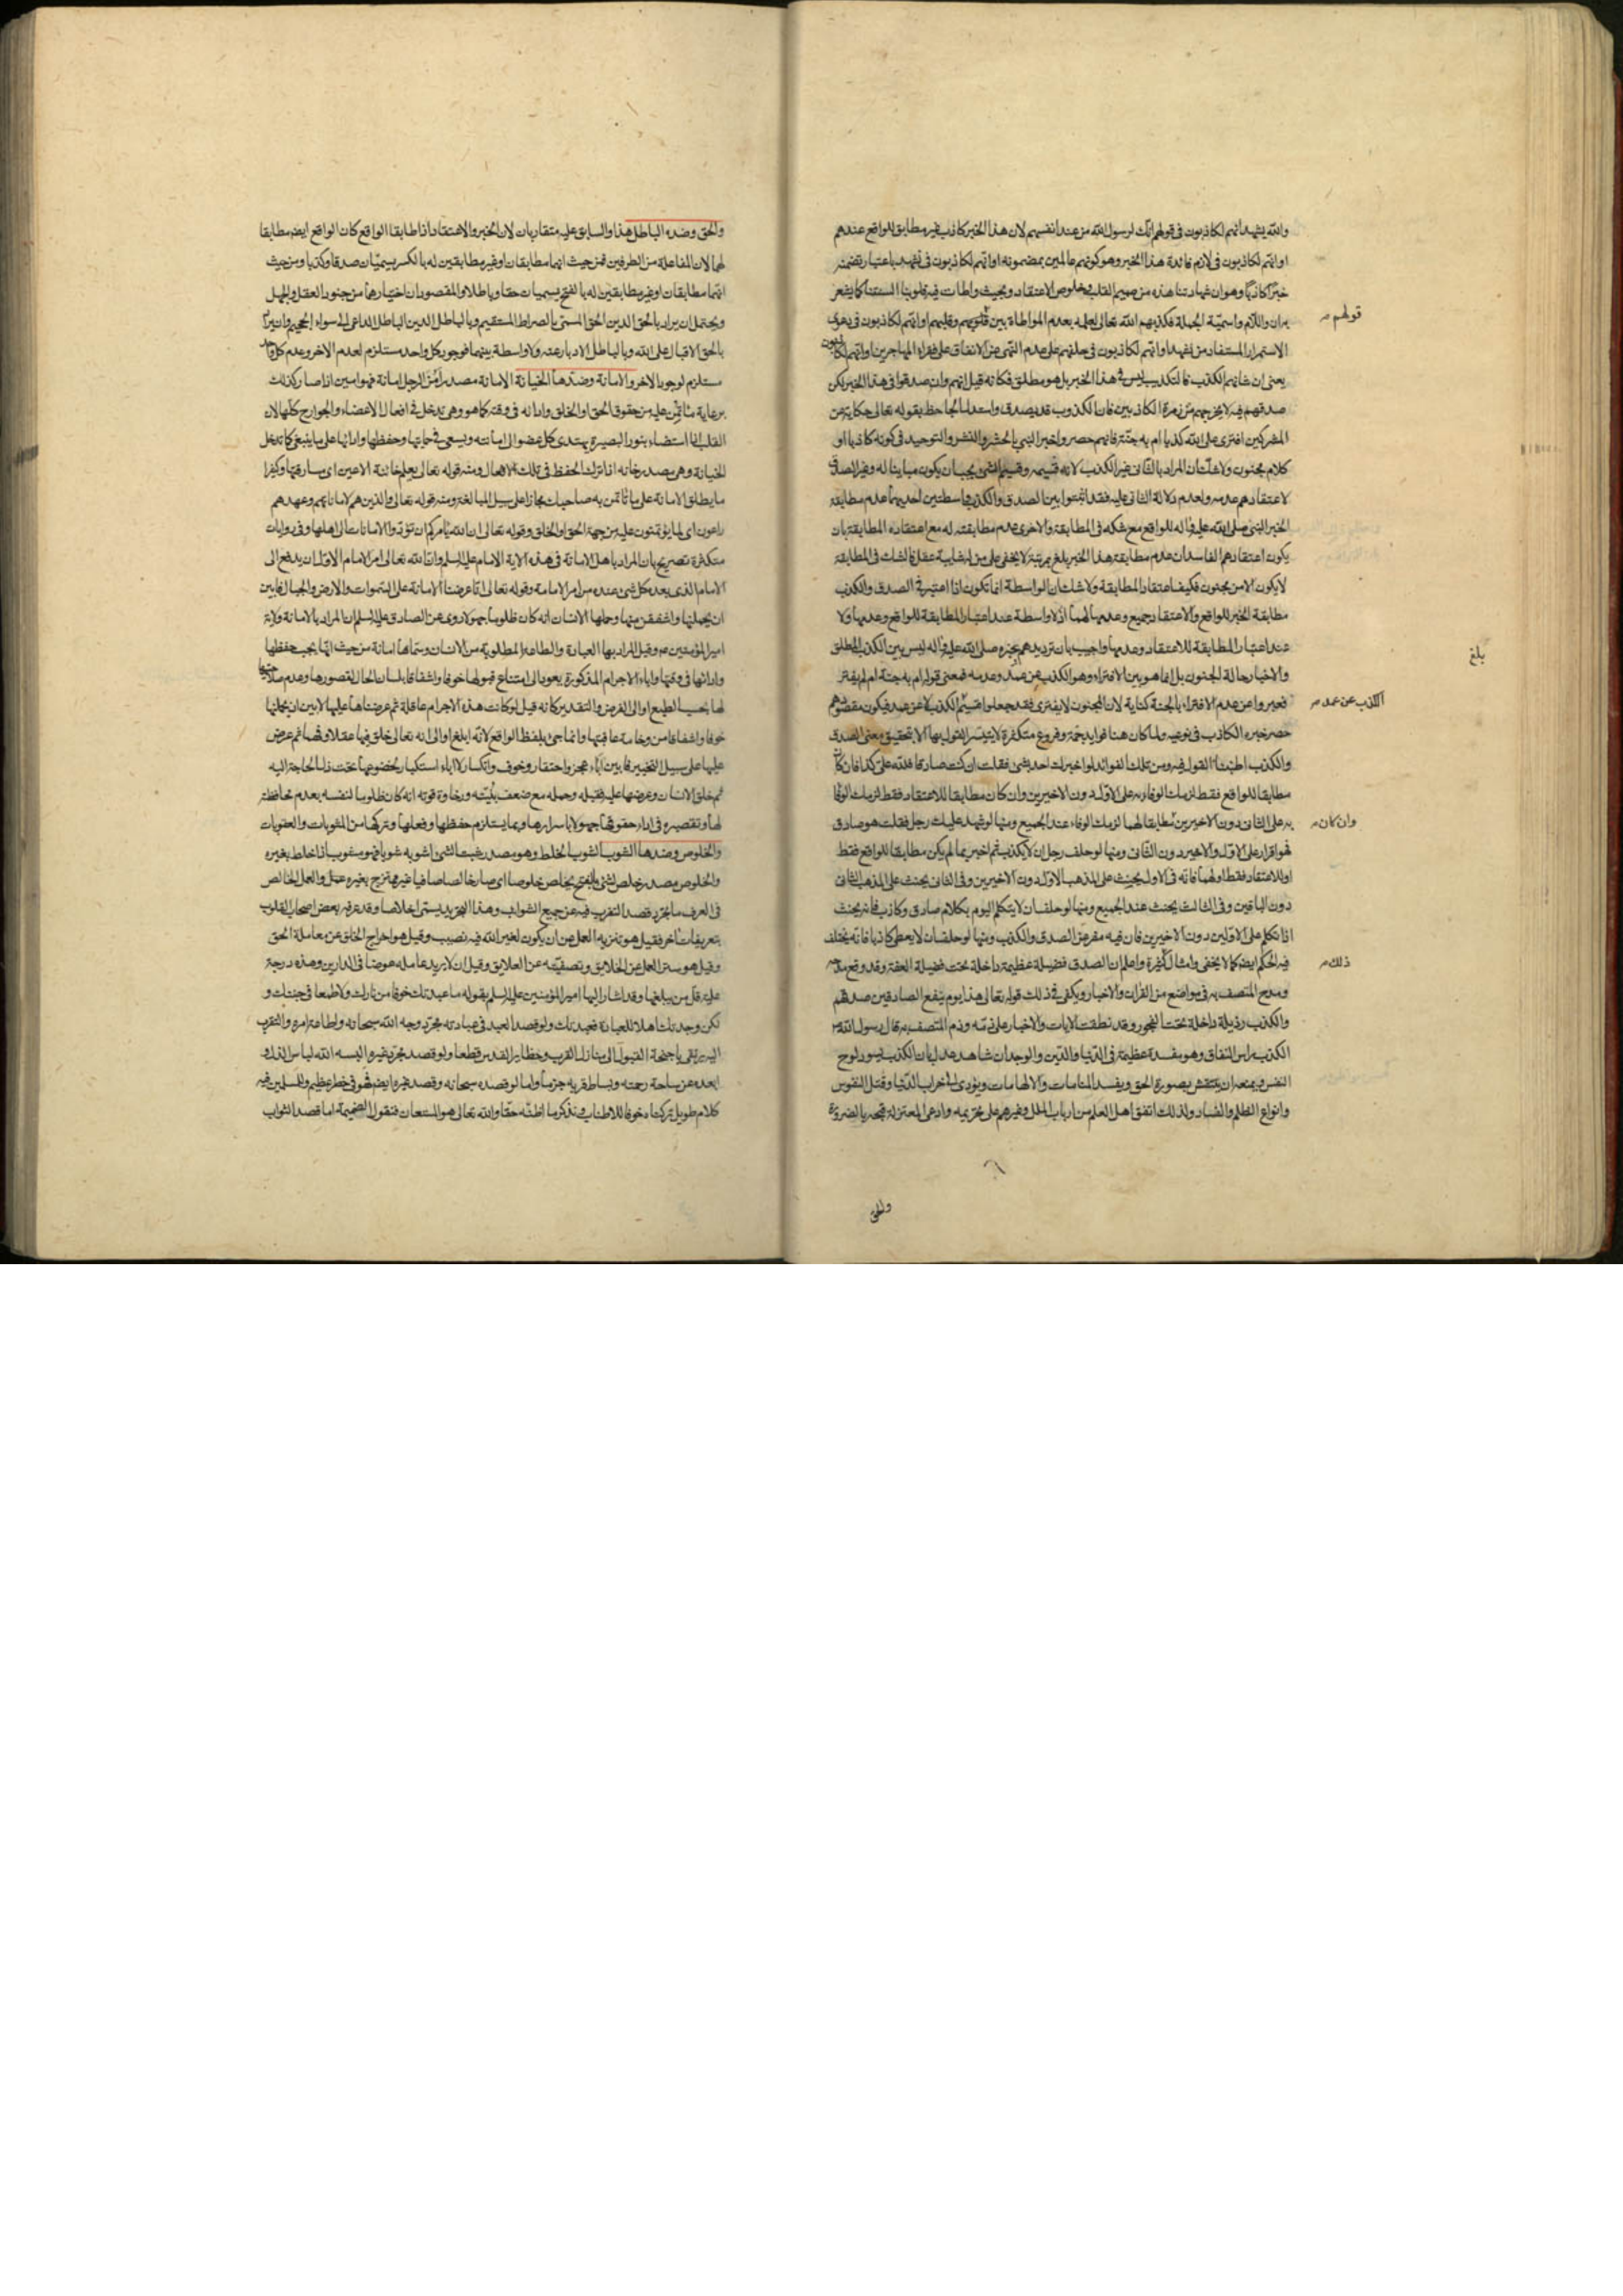 والله يشهد انهم لكاذبون في قولهم انك لرسول الله من عند انفسهم لان هذا الخبر كاذب غير مطابق للواقع عندهم
او انهم لكاذبون في لازم فائدة هذا الخبر وهو كونهم عالمين بمضمونه او انهم لكاذبون في نشهد باعتبار تضمنه
خبرا كاذبا وهو ان شهادتنا هذه من صميم القلب وخلوص الاعتقاد وبحيث واطات فيه قلوبنا السنتنا كما يشعر
به ان واللام واسمية الجملة فكذبهم الله تعالى لعلمه بعدم المواطاة بين قلوبهم وقلبهم او انهم لكاذبون في دعوى
قولهم
الاستمرار المستفاد من نشهد او انهم لكاذبون في حلفهم على عدم النهي عن الانفاق على فقراء المهاجرين او انهم لكاذبون
يعني ان شانهم الكذب فالتكذيب ليس في هذا الخبر بل هو مطلق فكانه قيل انهم وان صدقوا في هذا الخبر لكن
صدقهم فيه لا يخرجهم من زمرة الكاذبين فان الكذوب قد يصدق واستدل الجاحظ بقوله تعالى حكاية عن
المشركين افترى على الله كذبا ام به جنة فانهم حصروا خبر النبي بالحشر والنشر والتوحيد في كونه كاذبا او
كلام مجنون ولا شك ان المراد بالثاني غير الكذب لانه قسيمه وقسيم الشئ يجب ان يكون مباينا له وغير الصدق
لاعتقادهم عدمه ولعدم دلالة الثاني عليه فقد اثبتوا بين الصدق والكذب واسطتين احديهما عدم مطابقة
الخبر النبي صلى الله عليه واله للواقع مع شكه في المطابقة والاخرى عدم مطابقته له مع اعتقاده المطابقة بان
يكون اعتقادهم الفاسد ان عدم مطابقة هذا الخبر بلغ مرتبة لا يخفى على من له شايبة عقل فالشك في المطابقة
لا يكون الا من مجنون فكيف اعتقاد المطابقة ولا شك ان الواسطة انما تكون اذا اعتبر في الصدق والكذب
مطابقة الخبر للواقع والاعتقاد جميعا وعدمها لهما اذ لا واسطة عند اعتبار المطابقة للواقع وعدمها ولا
عند اعتبار المطابقة للاعتقاد وعدمها واجيب بان ترديدهم خبره صلى الله عليه واله ليس بين الكذب المطلق
بلغ
والاخبار حالة الجنون بل انما هو بين الافتراء وهو الكذب عن عمد وعدمه فمعنى قوله ام به جنة ام لم يفتر
فعبروا عن عدم الافتراء بالجنة كناية لان المجنون لا يفترى فقد جعلوا قسيم الكذب لا عن عمد فيكون مقصودهم
الكذب عن عمد
حصر خبره الكاذب في نوعيه ولما كان هنا فوايد جمة وفروع متكثرة لا يتيسر القول بها الا بتحقيق معنى الصدق
والكذب اطنبنا القول فيه ومن تلك الفوائد لو اخبرك احد بشئ فقلت ان كنت صادقا فلله على كذا فان كان
مطابقا للواقع فقط لزمك الوفاء به على الاول دون الاخيرين وان كان مطابقا للاعتقاد فقط لزمك الوفا
به على الثاني دون الاخيرين مطابقا لهما لزمك الوفاء عند الجميع ومنها لو شهد عليك رجل فقلت هو صادق
وان كان
فهو اقرار على الاول والاخير دون الثاني ومنها لو حلف رجل ان لا يكذب ثم اخبر بما لم يكن مطابقا للواقع فقط
او للاعتقاد فقط او لهما فانه في الاول يحنث على المذهب الاول دون الاخيرين وفي الثاني يحنث على المذهب الثاني
دون الباقين وفي الثالث يحنث عند الجميع ومنها لو حلف ان لا يتكلم اليوم بكلام صادق وكاذب فانه يحنث
اذا تكلم على الاولين دون الاخيرين فان فيه مفر عن الصدق والكذب ومنها لو حلف ان لا يعطى كاذبا فانه يختلف
فيه الحكم ايضا كما لا يخفى وامثال كثيرة واعلم ان الصدق فضيلة عظيمة داخلة تحت فضيلة العفة وقد وقع مدحه
ذلك
ومدح المتصف به في مواضع من القران والاخبار ويكفى في ذلك قوله تعالى هذا يوم ينفع الصادقين صدقهم
والكذب رذيلة داخلة تحت الفجور وقد نطقت الايات والاخبار على ذمه وذم المتصف به قال رسول الله
الكذب راس النفاق وهو مفسدة عظيمة في الدنيا والدين والوجدان شاهد عدل بان الكذب يسود لوح
النفس ويمنعه ان ينتقش بصورة الحق ويفسد المنامات والالهامات ويؤدى الى خراب الدنيا وقتل النفوس
وانواع الظلم والفساد ولذلك اتفق اهل العلم من ارباب الملل وغيرهم على تحريمه وادعى المعتزلة قبحه بالضرورة
والحق
والحق وضده الباطل هذا والسابق عليه متقاربان لان الخبر والاعتقاد اذا طابقا الواقع كان الواقع ايضا مطابقا
لهما لان المفاعلة من الطرفين فمن حيث انهما مطابقان او غير مطابقين له بالكسر يسميان صدقا وكذبا ومن حيث
انهما مطابقان او غير مطابقين له بالفتح يسميان حقا وباطلا والمقصود ان اختيارهما من جنود العقل والجهل
ويحتمل ان يراد بالحق الدين الحق المسمى بالصراط المستقيم وبالباطل الدين الباطل الداعى الى سواء الجحيم وان يراد
بالحق الاقبال على الله وبالباطل الادبار عنه ولا واسطة بينهما فوجود كل واحد مستلزم لعدم الاخر وعدم كل واحد
مستلزم لوجود الاخر والامانة وضدها الخيانة الامانة مصدر امن الرجل امانة فهو امين اذا صار كذلك
برعاية ما ائتمن عليه من حقوق الحق او الخلق وادائه في وقته كما هو وهي تدخل في افعال الاعضاء والجوارح كلها لان
القلب اذا استضاء بنور البصيرة يهتدى كل عضو الى امانته ويسعى في حمايتها وحفظها وادائها على ما ينبغى كما تدخل
الخيانة وهي مصدر خانه اذا ترك الحفظ في تلك الافعال ومنه قوله تعالى يعلم خائنة الاعين اى مسارقتها وكثيرا
ما يطلق الامانة على ما ائتمن به صاحبك مجازا على سبيل المبالغة ومنه قوله تعالى والذين هم لاماناتهم وعهدهم
راعون اى لما يؤتمنون عليه من جهة الحق او الخلق وقوله تعالى ان الله يأمركم ان تؤدوا الامانات الى اهلها وفي روايات
متكثرة تصريح بان المراد باهل الامانة في هذه الاية الامام عليه السلم وان الله تعالى امر الامام الاول ان يدفع الى
الامام الذى بعده كل شئ عنده من امر الامامة وقوله تعالى انا عرضنا الامانة على السموات والارض والجبال فابين
ان يحملنها واشفقن منها وحملها الانسان انه كان ظلوما جهولا روى عن الصادق عليه السلم ان المراد بالامانة ولاية
امير المؤمنين ع وقيل المراد بها العبادة والطاعة المطلوبة من الانسان وسماها امانة من حيث انها يجب حفظها
وادائها في وقتها واباء الاجرام المذكورة يعود الى امتناع قبولها خوفا واشفاقا بلسان الحال لقصورها وعدم صلاحيتها
لها بحسب الطبع او الى الفرض والتقدير كانه قيل لو كانت هذه الاجرام عاقلة ثم عرضناها عليها لابين ان يحملنها
خوفا واشفاقا من وخامة عاقبتها وانما جئ بلفظ الواقع لانه ابلغ او الى انه تعالى خلق فيها عقلا وفهما ثم عرض
عليها على سبيل التخيير فابين اباء عجز واحتقار وخوف وانكسار لا اباء استكبار لخضوعها تحت ذل الحاجة اليه
ثم خلق الانسان وعرضها عليه فقبله وحمله مع ضعف بنيته ورخاوة قوته انه كان ظلوما لنفسه بعدم محافظته
لها وتقصيره في اداء حقوقها جهولا باسرارها وبما يستلزم حفظها وفعلها وتركها من المثوبات والعقوبات
والخلوص وضدها الشوب الشوب الخلط وهو مصدر شبت الشئ اشوبه شوبا فهو مشوب اذا خلط بغيره
والخلوص مصدر خلص الشئ بالفتح يخلص خلوصا اى صار خالصا صافيا غير ممتزج بغيره عمل والعمل الخالص
في العرف ما تجرد قصد التقرب فيه عن جميع الشوايب وهذا التجريد يسمى اخلاصا وقد عرفه بعض اصحاب القلوب
بتعريفات اخر فقيل هو تنزيه العمل عن ان يكون لغير الله فيه نصيب وقيل هو اخراج الخلق عن معاملة الحق
وقيل هو ستر العمل عن الخلايق وتصفيته عن العلايق وقيل ان لا يريد عامله عوضا في الدارين وهذه درجة
علية قل من يبلغها وقد اشار اليها امير المؤمنين عليه السلم بقوله ما عبدتك خوفا من نارك ولا طمعا في جنتك و
لكن وجدتك اهلا للعبادة فعبدتك ولو قصد العبد في عبادته مجرد وجه الله سبحانه واطاعة امره والتقرب
اليه يرتقى باجنحة القبول الى منازل القرب وحظاير القدس قطعا ولو قصد مجرد غيره البسه الله لباس الذل و
ابعده عن ساحة رحمته وبساط قربه جزما واما لو قصده سبحانه وقصد غيره ايضا فهو في خطر عظيم وللمسلمين فيه
كلام طويل تركناه خوفا للاطناب فنذكر ما اظنه حقا والله تعالى هو المستعان فنقول الضميمة اما قصد الثواب